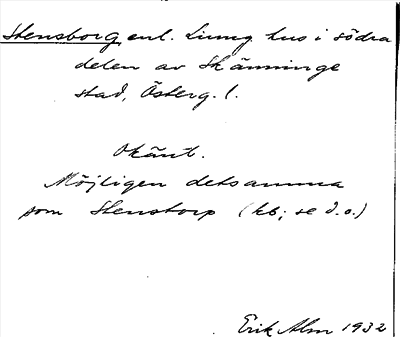 Stensborg, enl. Ljung hus i södra
delen av Skänninge
stad, Österg. l.
Okänt.
Möjligen detsamma
som Stenstorp (kb; se d.o.)
Erik Alm 1932